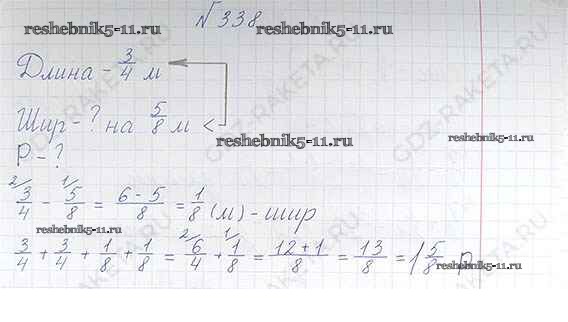 №338
reshebnik5-11.ru reshebnik5-11.ru
Длина - 3/4 м
Шир - ? на 5/8 м <
reshebnik5-11.ru
P - ?
reshebnik5-11.ru
2/ 3/4 - 1/ 5/8 = 6-5/8 = 1/8 (м) - шир
reshebnik5-11.ru
3/4 + 3/4 + 1/8 + 1/8 = 2/ 6/4 + 1/ 1/8 = 12+1/8 = 13/8 = 1 5/8 - P
reshebnik5-11.ru
GDZ-RAKETA.RU
GDZ-RAKETA.RU
GDZ-RAKETA.RU
GDZ-RAKETA.RU